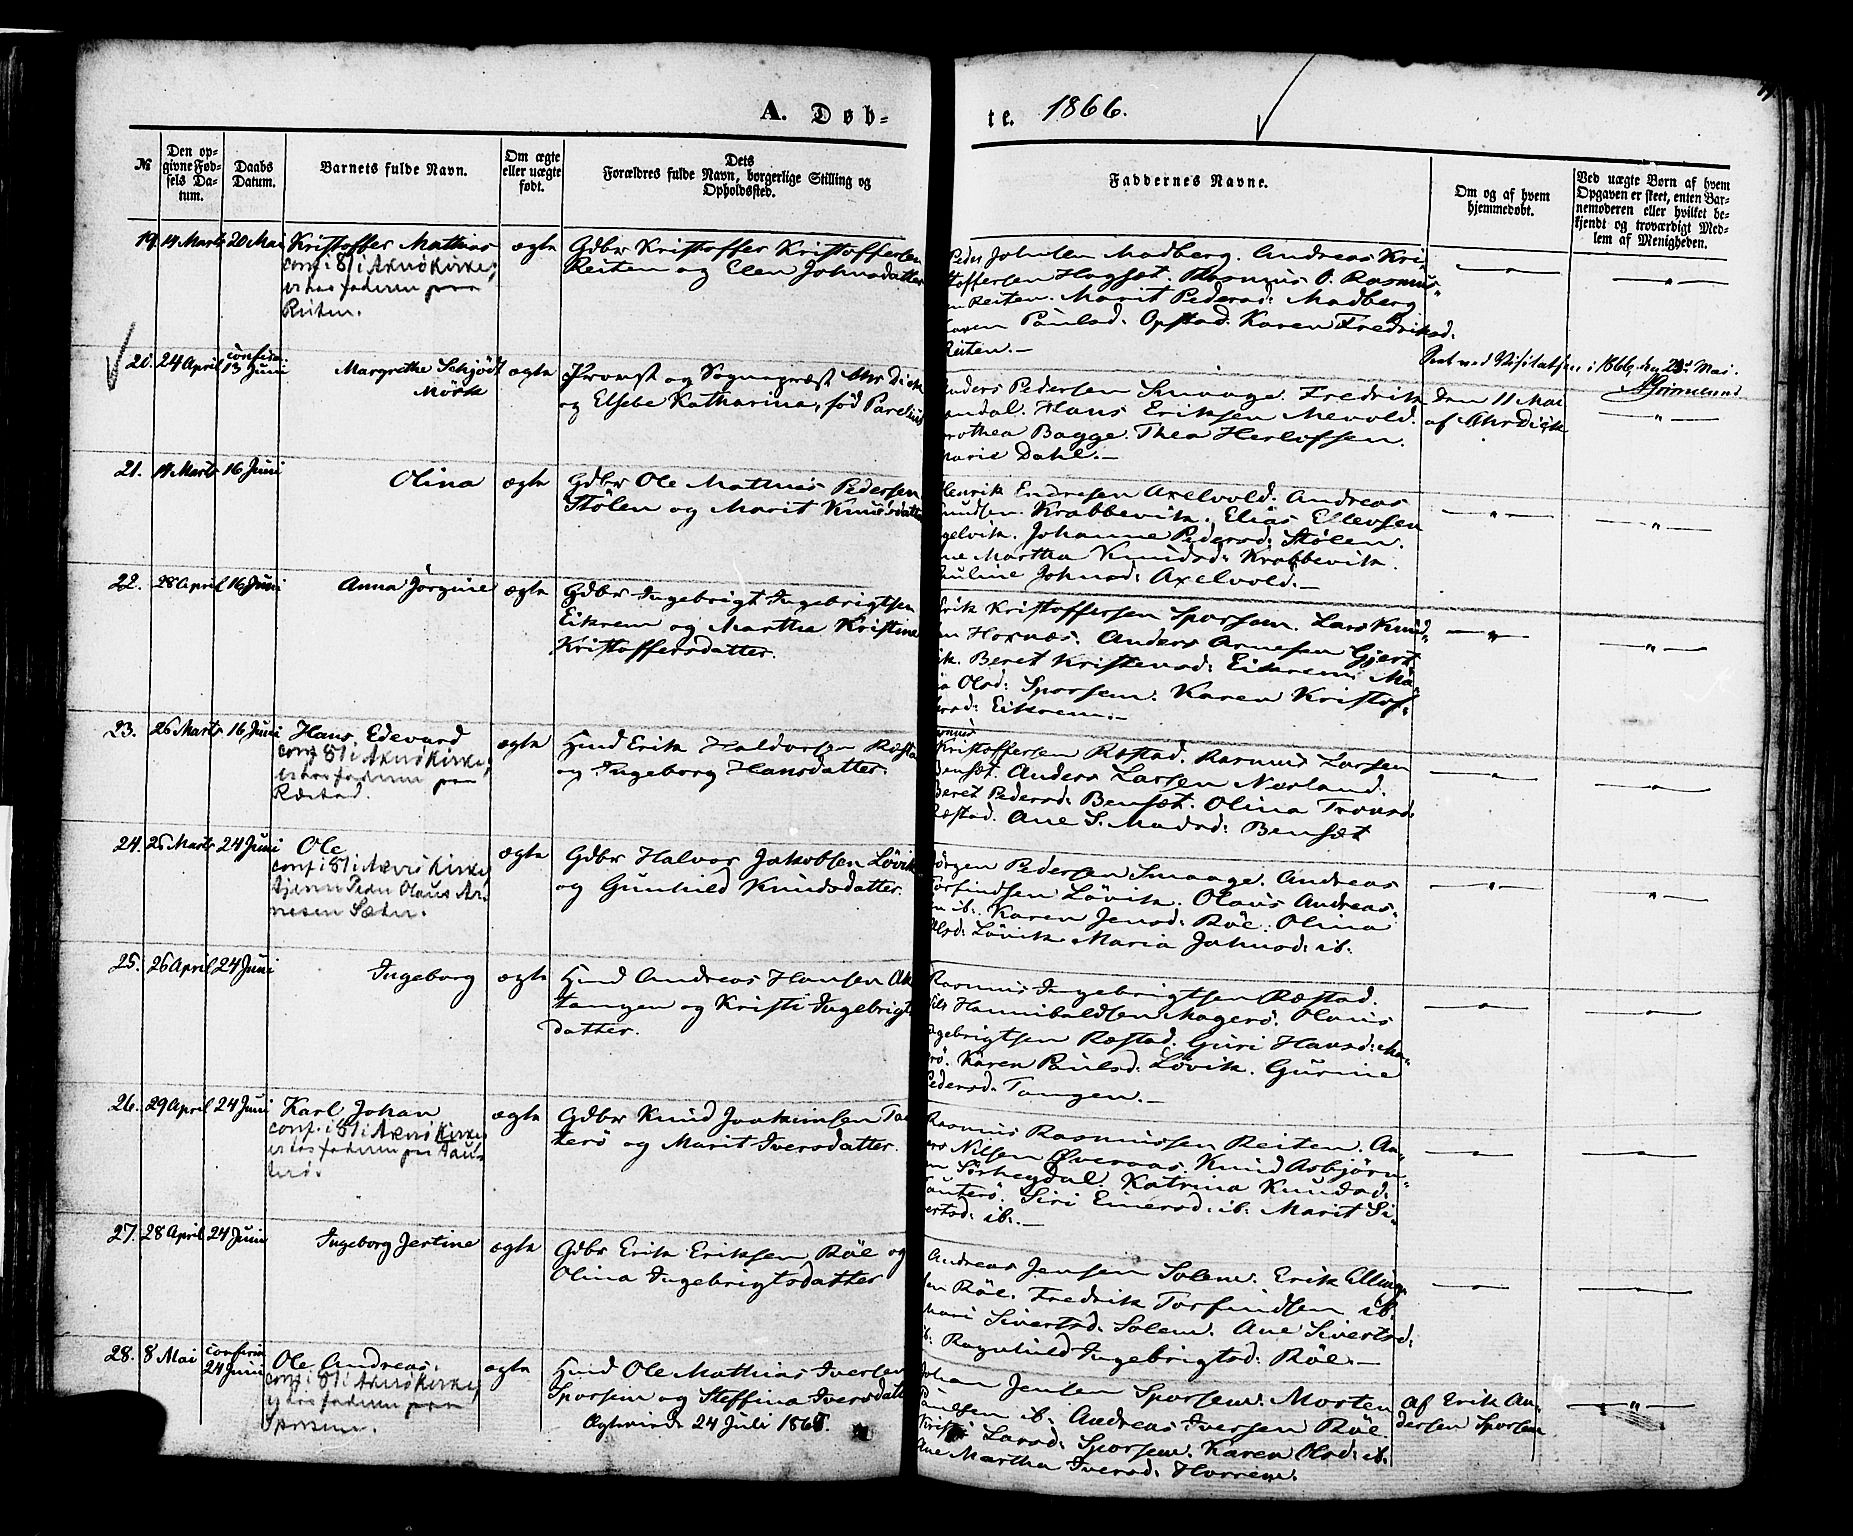 A. Døb-
te. 1866.
№
Den op-
givne Fød-
sels Da-
tum.
Daabs
Datum.
Barnets fulde Navn.
Om ægte
eller uægte
født.
Dets
Forældres fulde Navn, borgerlige Stilling og
Opholdssted.
Faddernes Navne.
Om og af hvem
hjemmedøbt.
Ved uægte Børn af hvem
Opgaven er skeet, enten Bar-
nemoderen eller hvilket be-
kjendt og troværdigt Med-
lem af Menigheden.
19. 14 Marts 20 Mai Kristoffer Mathias ægte
conf i 81 i Akerø Kirke,
er hos faderen paa
Reiten.
Gdbr Kristoffer Kristoffersen
Reiten og Elen Johnsdatter
Peder Johnsen Madberg. Andreas Kri-
stoffersen Hagset. Rasmus O. Rasmus-
Reiten. Marit Pedersd: Madberg
Paulsd. Opstad. Karen Fredriksd.
Reiten.
20. 24 April confirm
13 Juni Margrethe Schjødt
Mörk ægte
Provst og Sognepræst Chr Dick
og Elsebe Katharina, fød Parelius
Anders Pedersen Smaage. Fredrik
Hans Eriksen Mevold.
Dorothea Bagge. Thea Herlofsen.
Marie Dahl.
Seet ved Visitatsen i 1866, den 23d Mai.
Grimelund
Den 11 Mai
af Chr Dick
21. 14 Marts 16 Juni Olina ægte
Gdbr Ole Mathias Pedersen
Stölen og Marit Knudsdatter
Henrik Endresen Axelvold. Andreas
Knudsen Krabbevik. Elias Ellevsen
Johanne Pedersd: Stölen.
Ane Martha Knudsd: Krabbevik.
Pauline Johnsd: Axelvold.
22. 28 April 16 Juni Anna Jörgine ægte
Gdbr Ingebrigt Ingebrigtsen
Eikrem og Martha Kristine
Kristoffersdatter.
Erik Kristoffersen Sporsem. Lars Knud-
sen Hornæs. Anders Arnesen Gjert
vik. Beret Kristensd: Eikrem. Ma-
ria Olsd: Sporsem. Karen Kristof-
fersd: Eikrem.
23. 26 Marts 16 Juni Hans Edevard ægte
conf 81 i Akerø Kirke,
er hos faderen paa
Ræstad.
Hmd Erik Haldorsen Ræstad
og Ingeborg Hansdatter.
Kristoffersen Ræstad. Rasmus Larsen
Bensæt. Anders Larsen Nerland.
Beret Pedersd: Bensæt. Olina Tronsd:
Ræstad. Ane S. Madsd: Bensæt
24. 25 Marts 24 Juni Ole ægte
conf i 81 i Akerø Kirke,
tjener Peder Olaus Ar-
nesen Sæter.
Gdbr Halvor Jakobsen Lövik
og Gunhild Knudsdatter.
Jörgen Pedersen Smaage. Andreas
Torfindsen Lövik. Olaus Andreas-
sen ib. Karen Jensd: Röe. Olina
Olsd: Lövik. Maria Johnsd: ib.
25. 26 April 24 Juni Ingeborg ægte
Hmd Andreas Hansen Ak
tangen og Kristi Ingebrigts
datter.
Rasmus Ingebrigtsen Ræstad.
Nils Hannibaldsen Magerö. Olaus
Ingebrigtsen Ræstad. Guri Hansd: Ma-
gerö. Karen Paulsd: Lövik. Gurine
Pedersd: Tangen.
26. 29 April 24 Juni Karl Johan ægte
conf. i 81 i Akerø Kirke
er hos faderen paa Tau-
terø.
Gdbr Knud Joakimsen Tau
terö og Marit Iversdatter.
Rasmus Rasmussen Reiten. An-
ders Nilsen Øveraas. Knud Asbjörn-
sen Sörheydal. Katrina Knudsd:
Tauterö. Siri Einersd: ib. Marit Si-
vertsd: ib.
27. 28 April 24 Juni Ingeborg Jertine ægte
Gdbr Erik Eriksen Röe og
Olina Ingebrigtsdatter
Andreas Jensen Solem. Erik Elling-
sen Röe. Fredrik Torfindsen ib.
Mari Sivertsd. Solem. Ane Sivertsd:
ib. Ragnhild Ingebrigtsd: Röe.
28. 8 Mai confirm
24 Juni Ole Andreas. ægte
conf. i 81 i Akerø Kirke,
er hos faderen paa
Sporsem.
Hmd Ole Mathias Iversen
Sporsem og Steffina Iversdatter
Ægteviede 24 Juli 1865.
Johan Jensen Sporsem. Morten
Paulsen ib. Andreas Iversen Röe.
Kirsti Larsd: Sporsem. Karen Olsd: ib.
Ane Martha Iversd: Horrem.
af Erik An-
dersen Sporsem